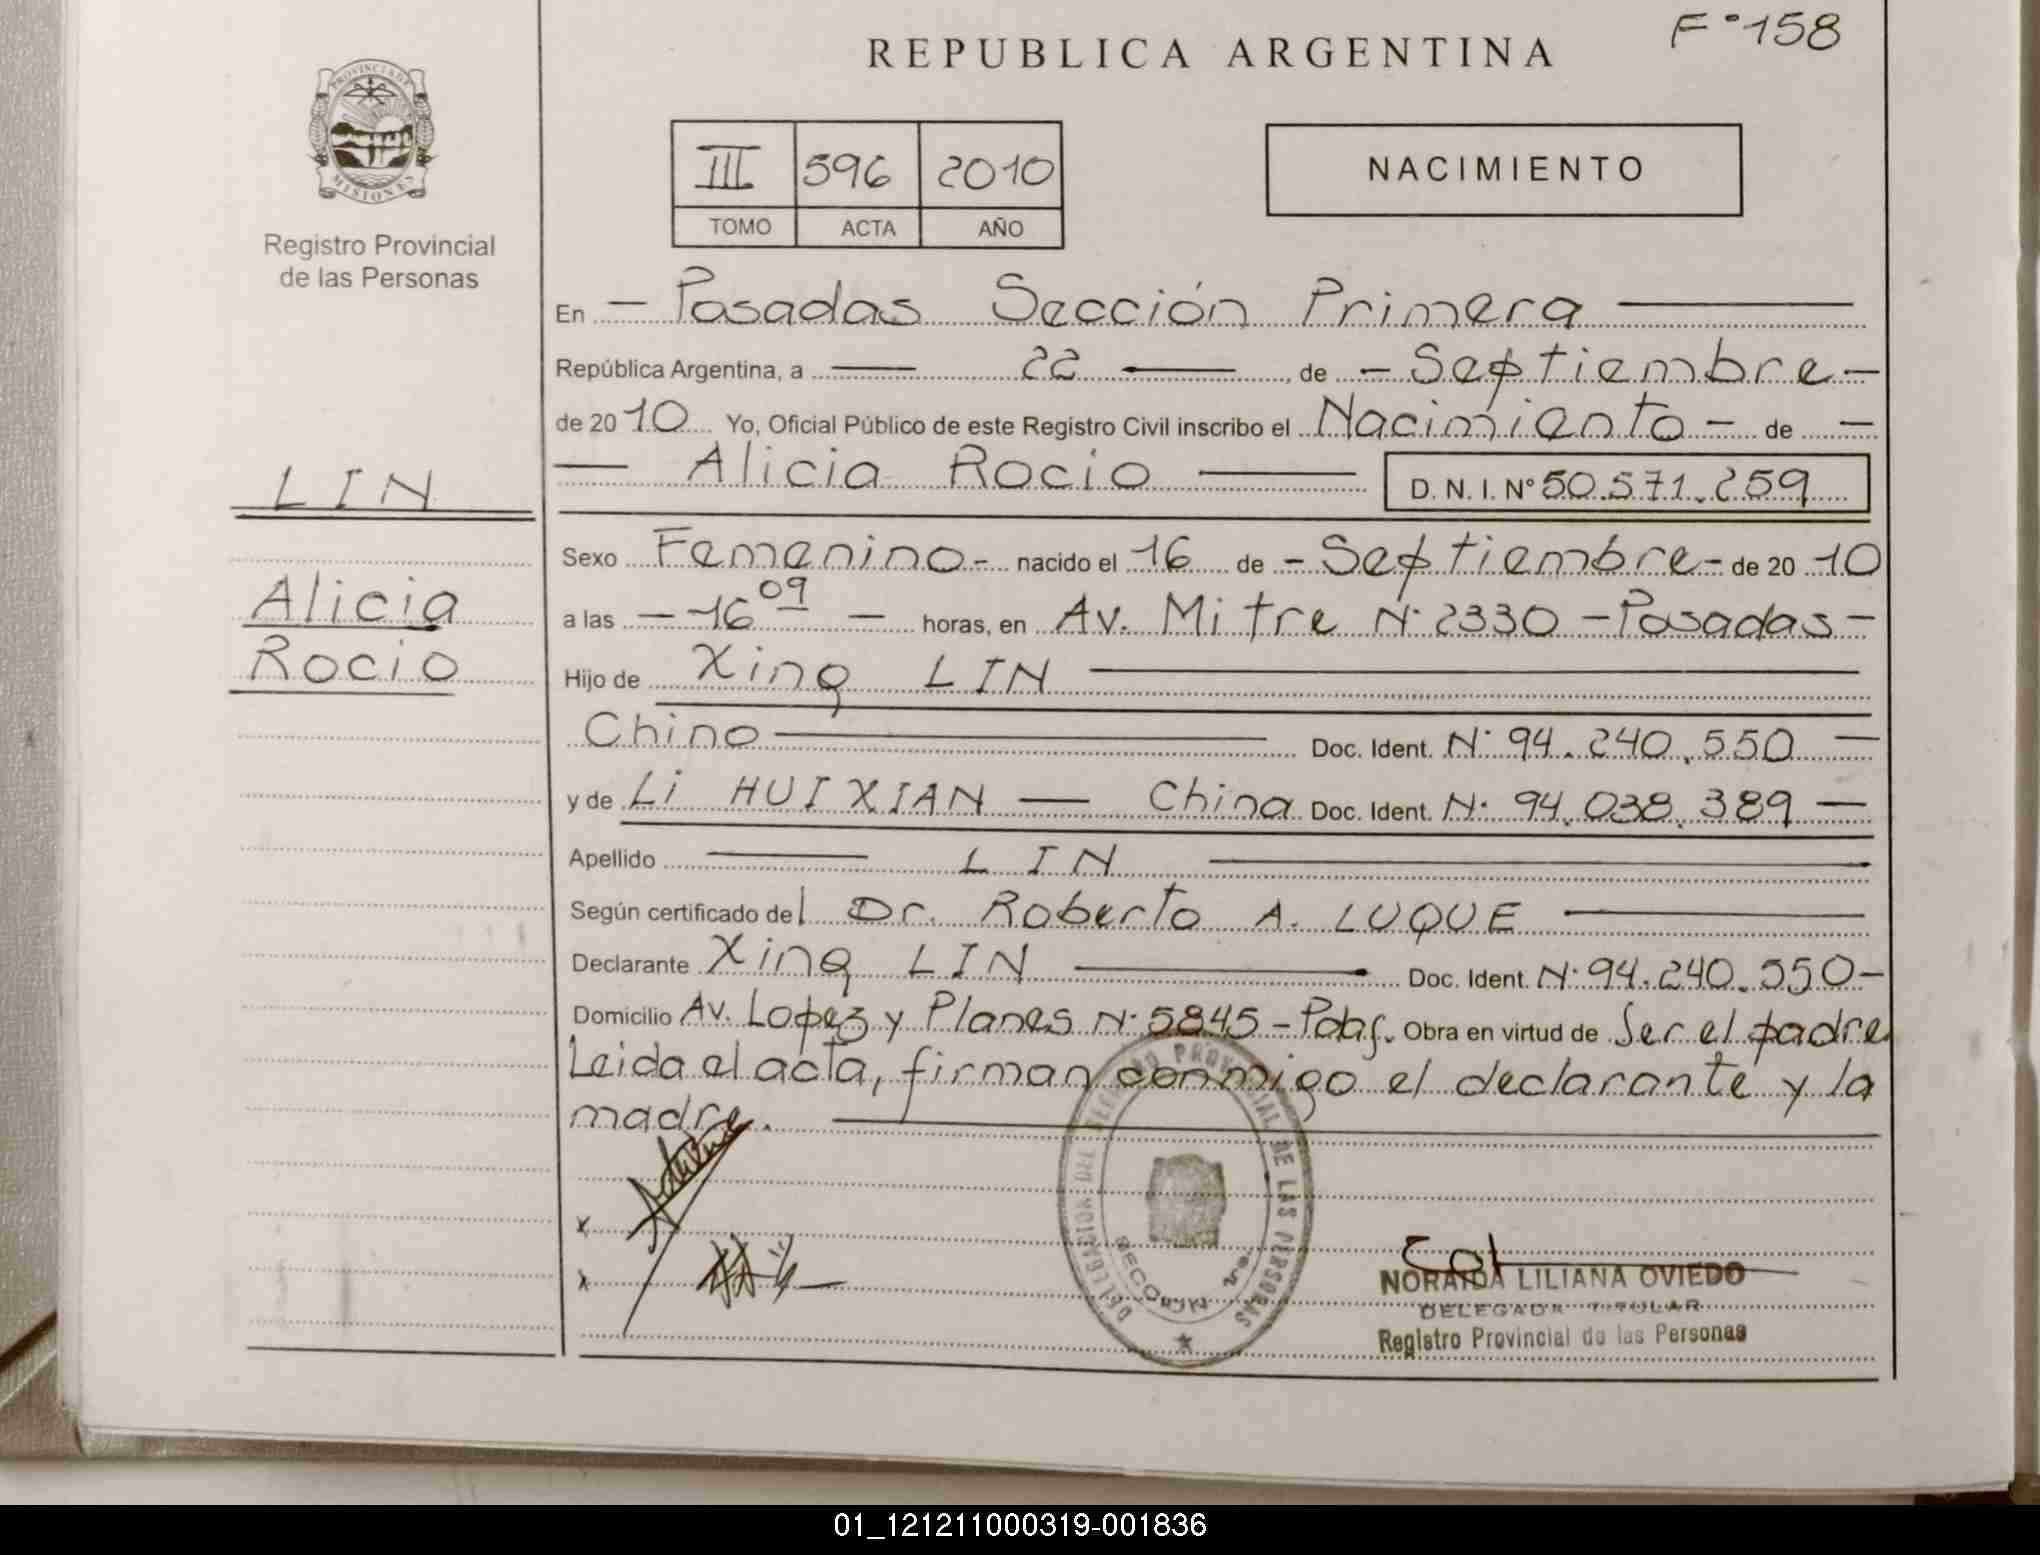 F° 158
REPUBLICA ARGENTINA
PROVINCIA DE
MISIONES
Registro Provincial
de las Personas
III 596 2010
TOMO ACTA AÑO
NACIMIENTO
En — Posadas Sección Primera
República Argentina, a — 22 — , de — Septiembre —
de 2010 Yo, Oficial Público de este Registro Civil inscribo el Nacimiento — de —
— Alicia Rocio — D. N. I. N° 50.571.259
LIN
Alicia
Rocio
Sexo Femenino - nacido el 16 de - Septiembre - de 2010
a las — 16 09 — horas, en Av. Mitre N° 2330 - Posadas -
Hijo de Xing LIN
Chino — Doc. Ident. N° 94.240.550 —
y de Li HUIXIAN — China Doc. Ident. N° 94.038.389 —
Apellido — LIN
Según certificado del Dr. Roberto A. LUQUE
Declarante Xing LIN — Doc. Ident. N° 94.240.550 -
Domicilio Av. Lopez y Planes N° 5845 - Pdas. Obra en virtud de Ser el padre.
Leida el acta, firman conmigo el declarante y la
madre.
x
x
DELEGACION DEL REGISTRO PROVINCIAL DE LAS PERSONAS
SECCION 1ra.
NORAIDA LILIANA OVIEDO
DELEGADA TITULAR
Registro Provincial de las Personas
01_121211000319-001836